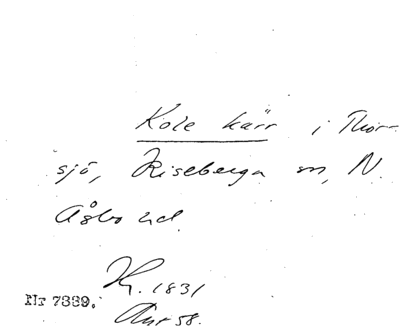 Kole kärr i Thor-
sjö, Riseberga sn, N.
Åsbo hd.
1831
Akt 58.
Nr 7889.